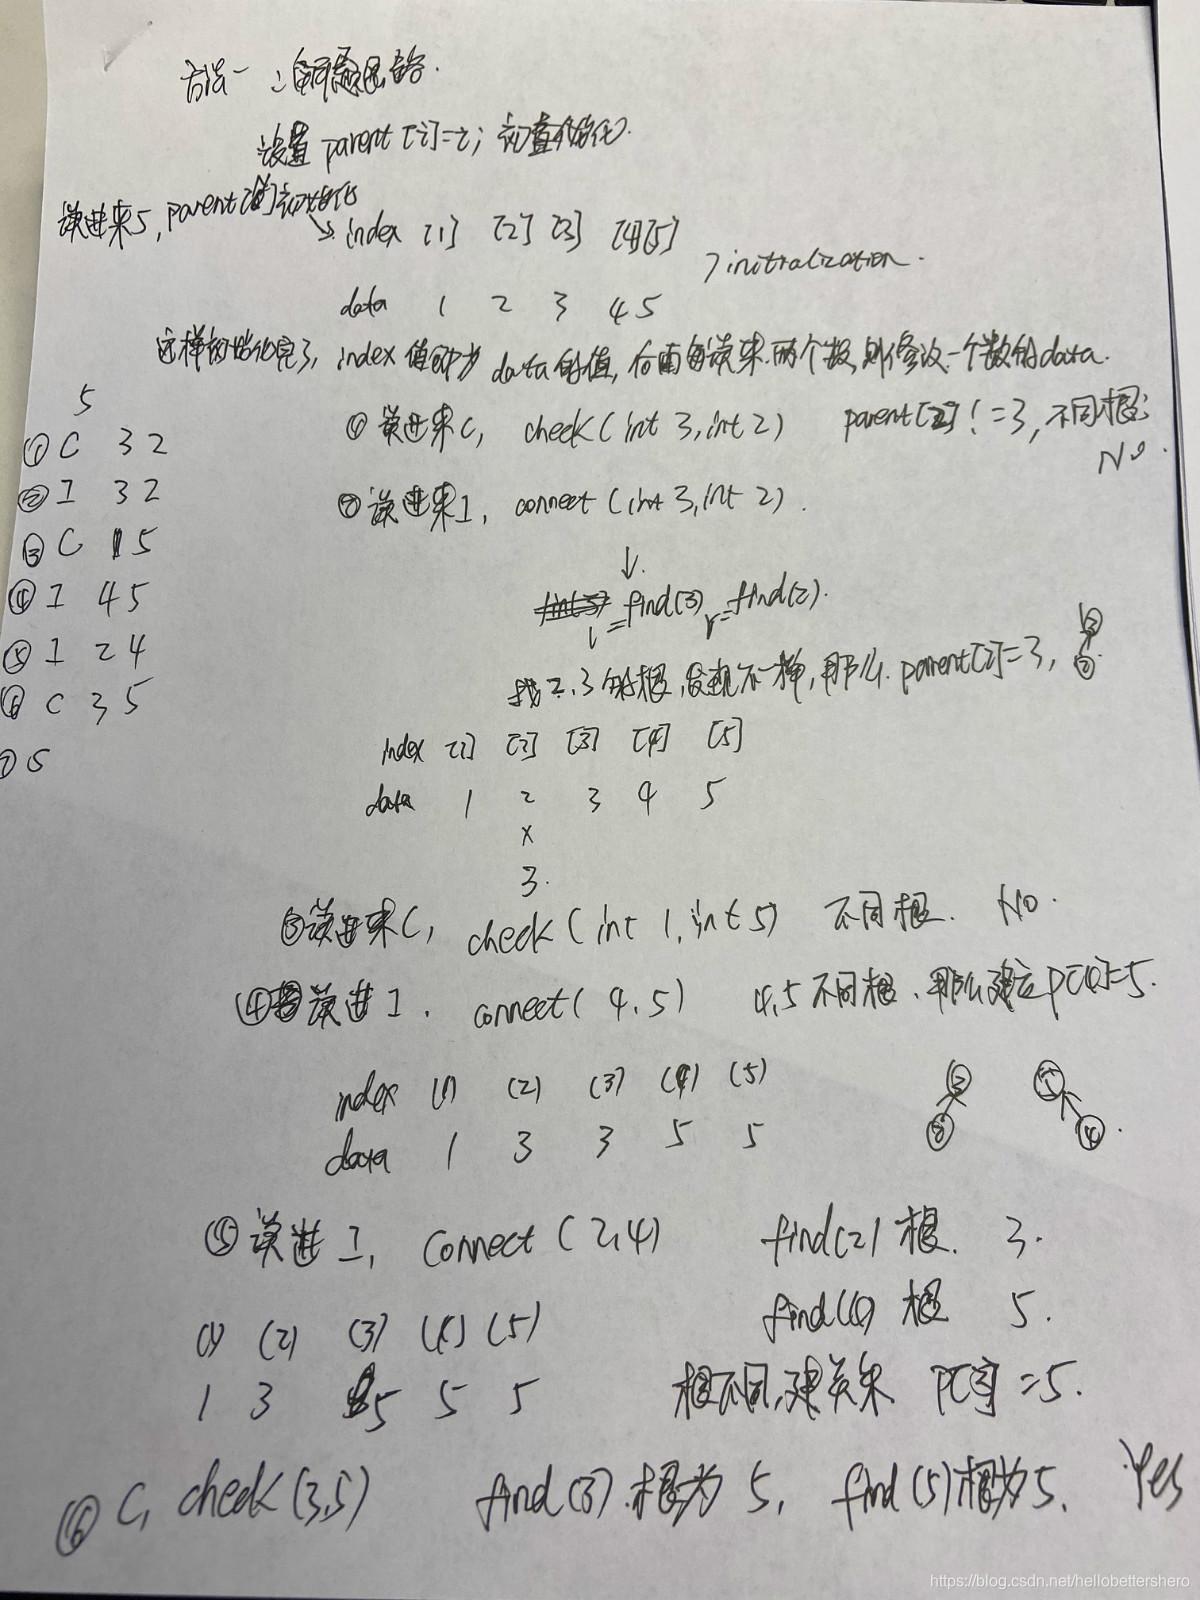 方法一：解题思路.
设置 parent[i]=i; 初始化.
读进来5, parent[i]初始化
index [1] [2] [3] [4] [5]
initialization.
data 1 2 3 4 5
这样初始化完了, index 值即为 data的值, 后面每读来两个数,则修改一个数的data.
5
① C 3 2
② I 3 2
③ C 1 5
④ I 4 5
⑤ I 2 4
⑥ C 3 5
⑦ S
① 读进来C, check(int 3, int 2) parent[2]!=3, 不同根;
No.
② 读进来I, connect(int 3, int 2).
↓.
l=find(3) r=find(2).
找2、3的根,发现不一样,那么 parent[2]=3, ③ ②
index [1] [2] [3] [4] [5]
data 1 2 3 4 5
x
3.
③ 读进来C, check(int 1, int 5) 不同根. No.
④ 读进I. connect(4,5) 4,5不同根、那么建立P[4]=5.
index (1) (2) (3) (4) (5)
data 1 3 3 5 5
③ ②
⑤ ④
⑤ 读进I, connect(2,4) find(2)根. 3.
find(4)根 5.
(1) (2) (3) (4) (5)
1 3 5 5 5
根不同,建关系 P[3]=5.
⑥ C, check(3,5) find(3).根为 5, find(5)根为5. Yes
https://blog.csdn.net/hellobettershero